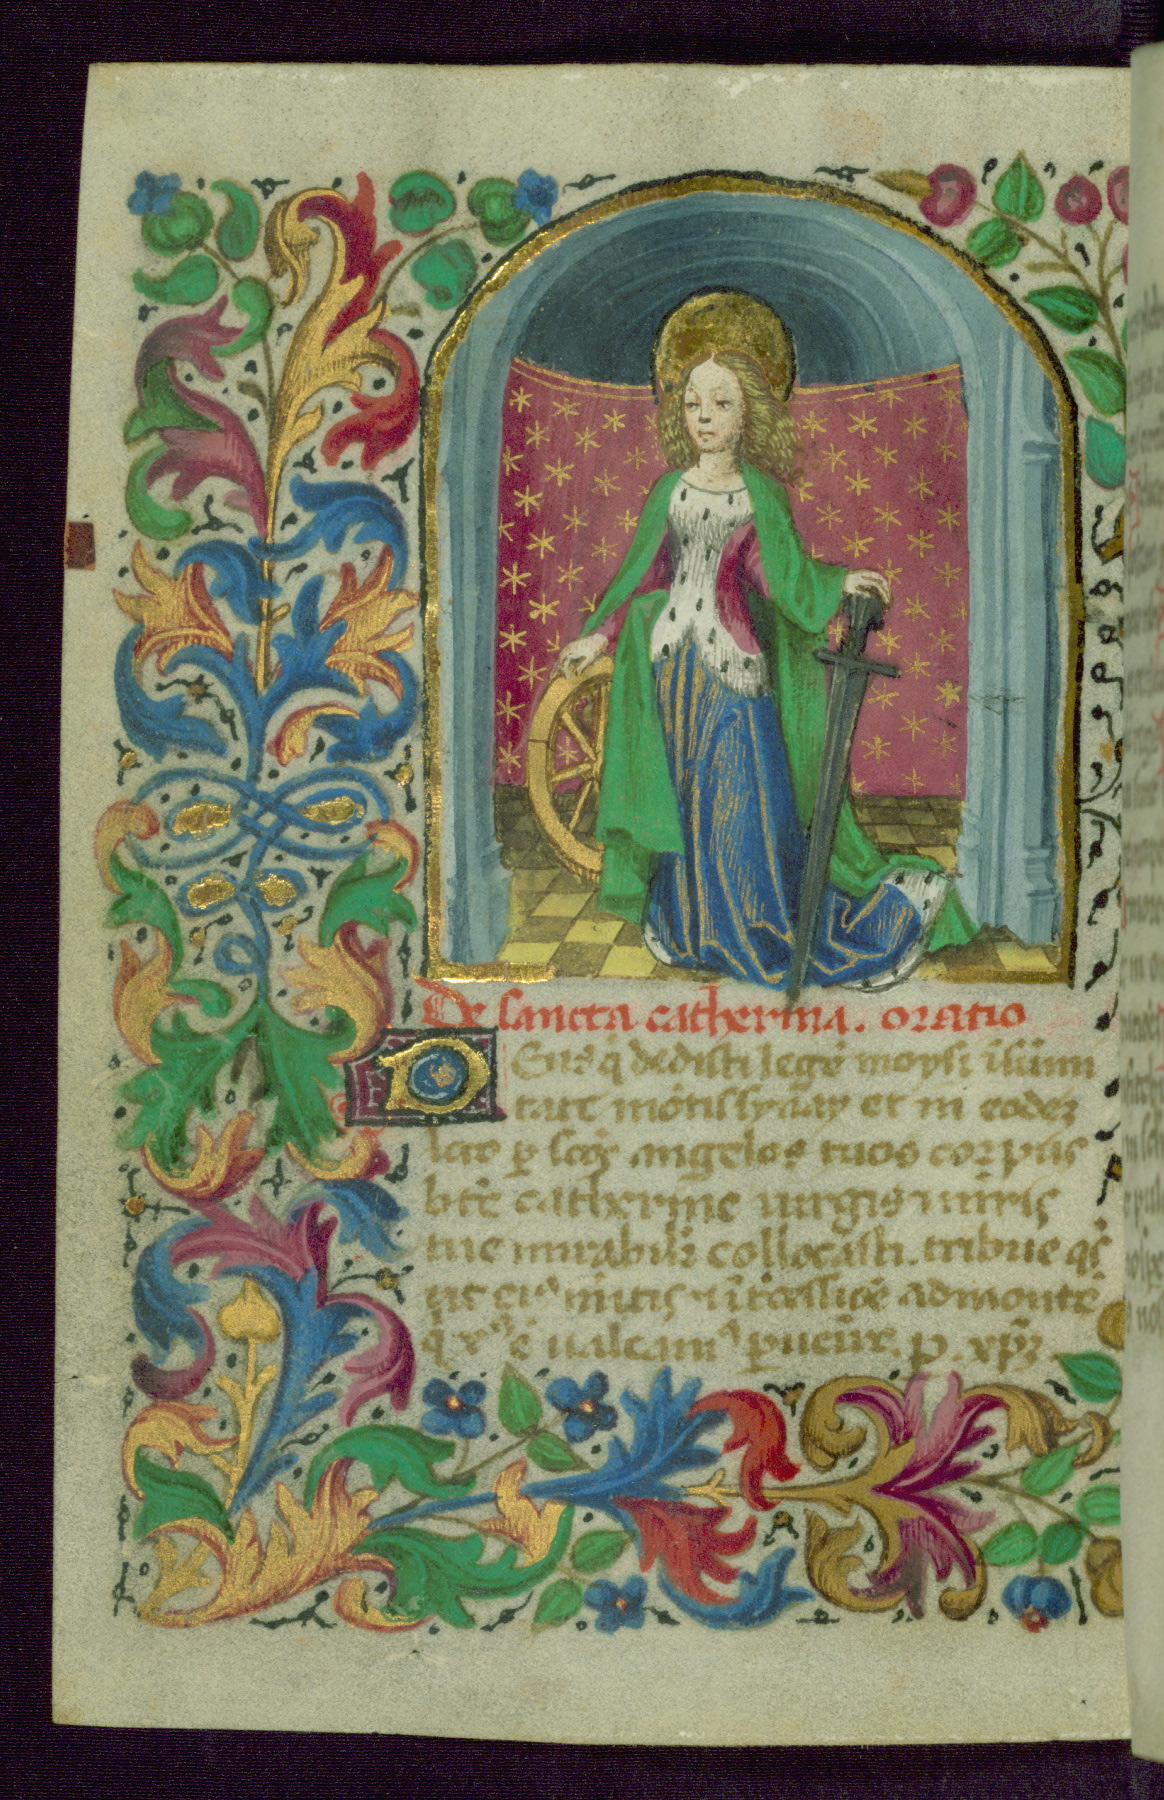 De sancta catherina. oratio
Deus q̇ dedisti legē moysi ī sūmi
tate mōtis synay et in eodez
loco ꝑ scōs angelos tuos corpus
btē catherine uirgīs ⁊ mr̄is
tue mirabilr̄ collocasti. tribue qs̄
ut eiꝰ mītis ⁊ ītcessiōe ad montē
q̇ xp̄s ē ualeamꝰ ꝑuenire. p. xp̄m